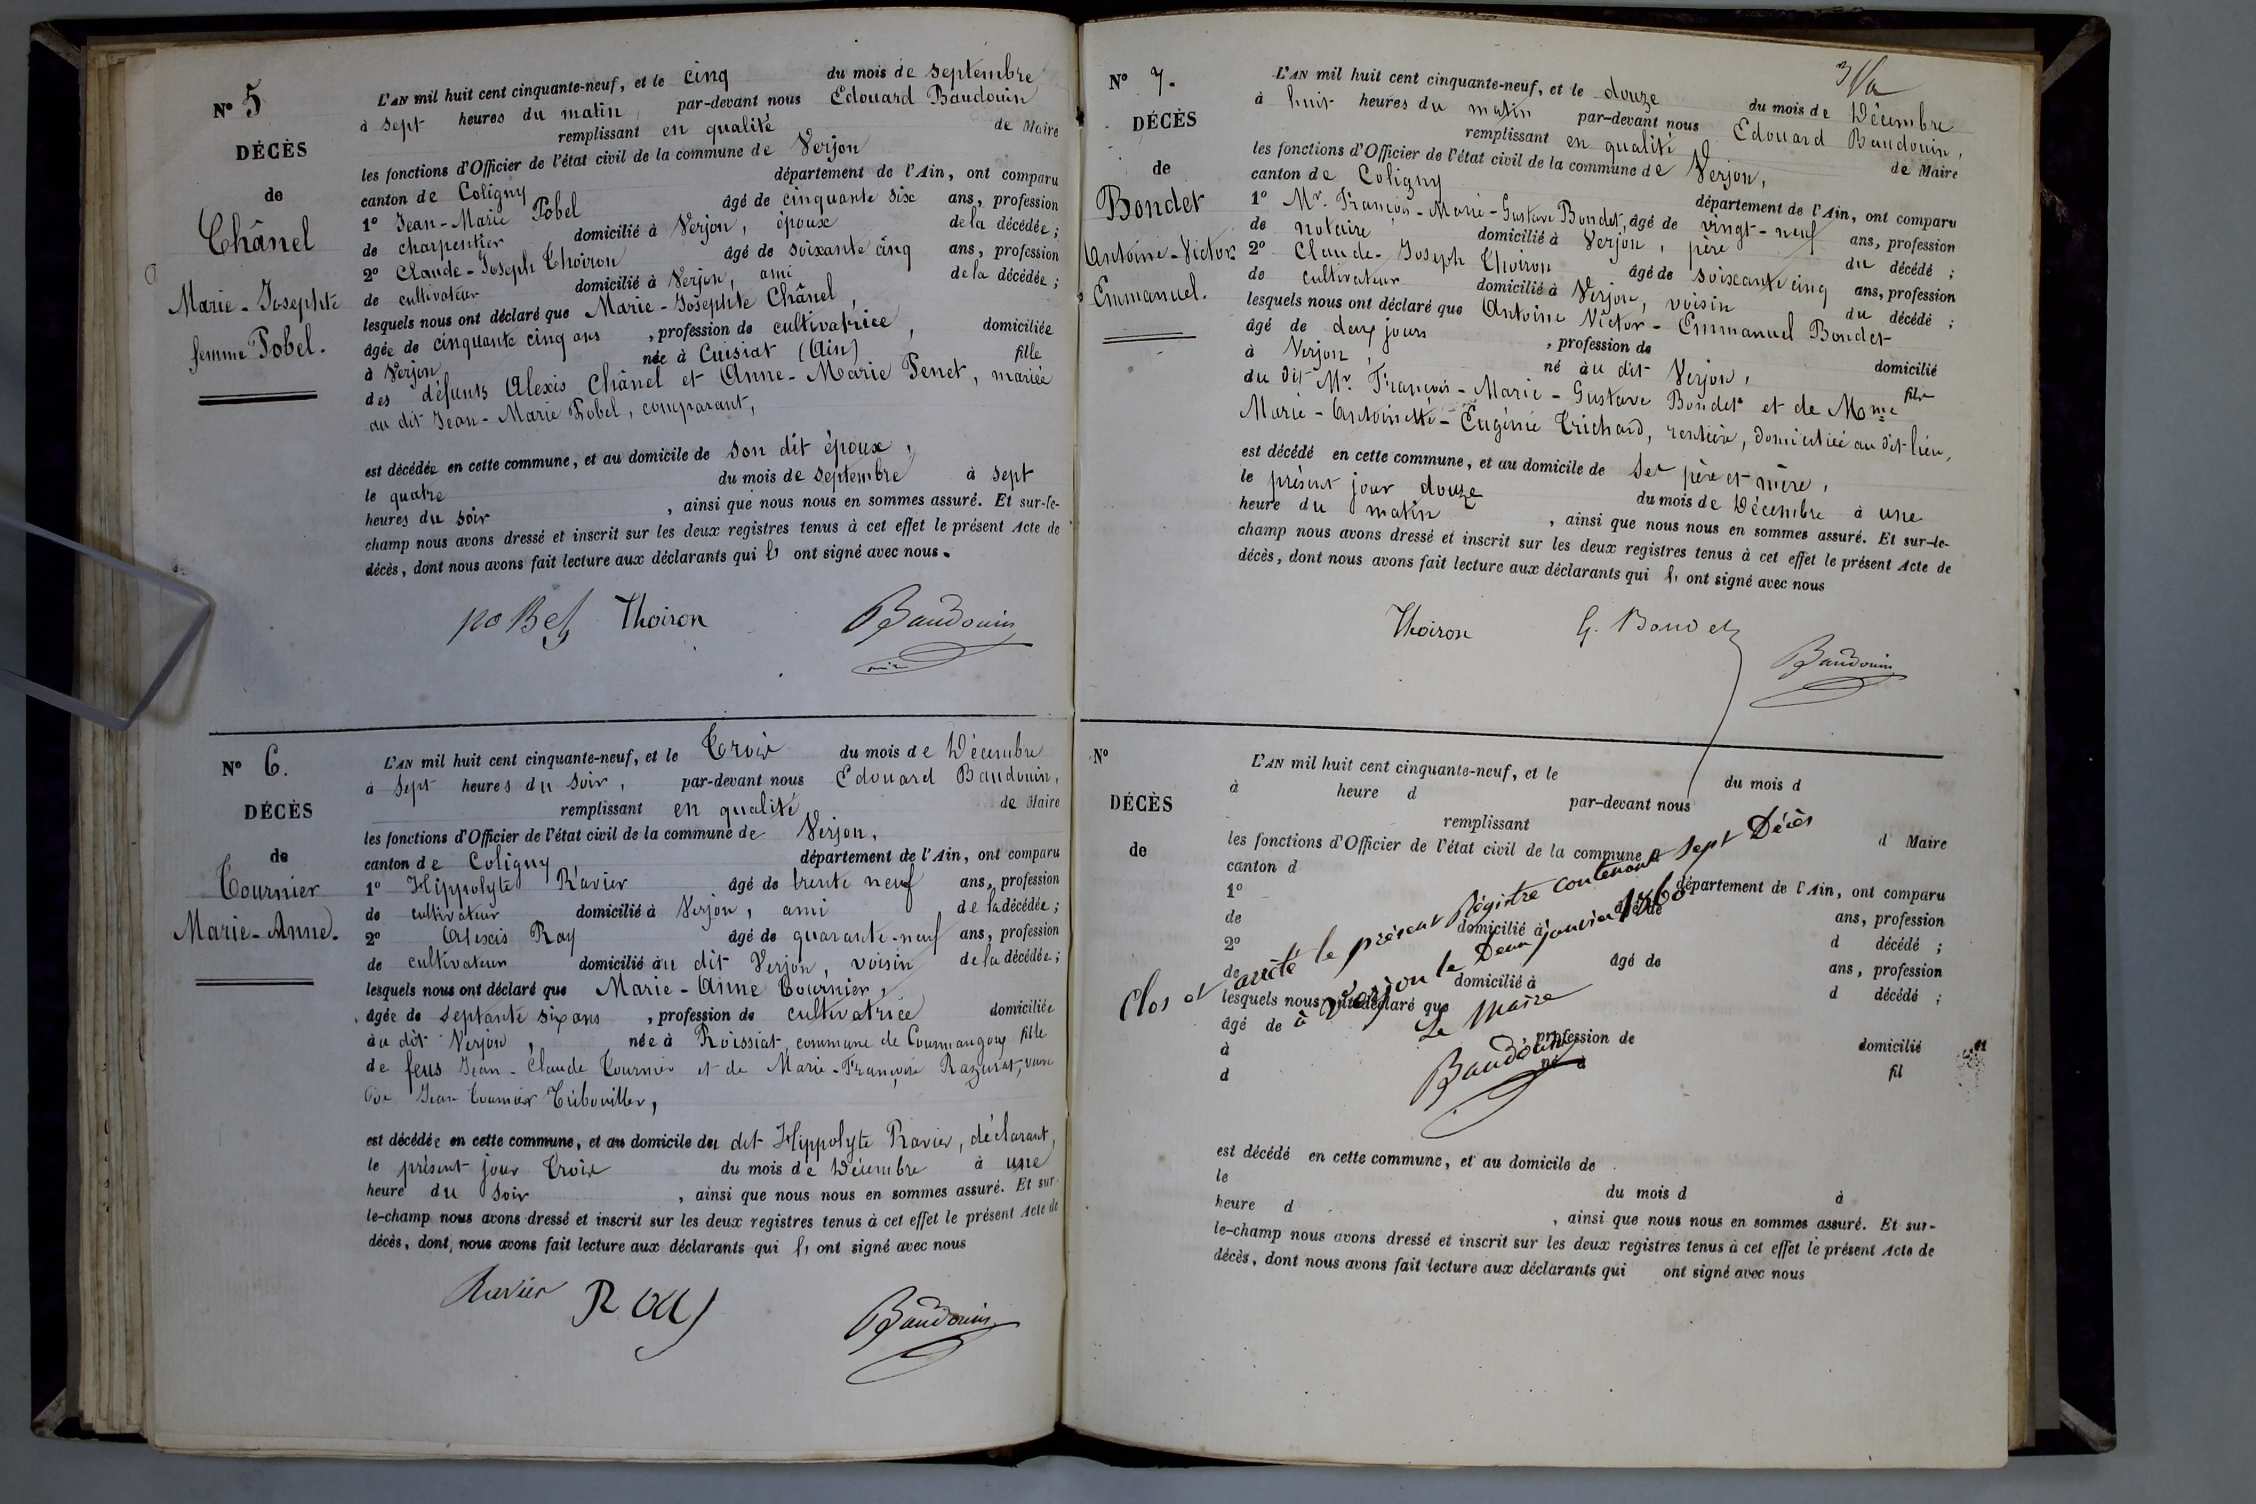 N° 5
DÉCÈS
de
Chânel
Marie-Josephte
femme Pobel.
L'AN mil huit cent cinquante-neuf, et le cinq du mois de septembre
à sept heures du matin, par-devant nous Edouard Baudouin
remplissant en qualité de Maire
les fonctions d'Officier de l'état civil de la commune de Verjon
canton de Coligny département de l'Ain, ont comparu
1° Jean-Marie Pobel âgé de cinquante six ans, profession
de charpentier domicilié à Verjon, époux de la décédée;
2° Claude-Joseph Thoiron âgé de soixante cinq ans, profession
de cultivateur domicilié à Verjon, ami de la décédée;
lesquels nous ont déclaré que Marie-Josephte Chânel,
âgée de cinquante cinq ans, profession de cultivatrice, domiciliée
à Verjon née à Cuisiat (Ain) fille
des défunts Alexis Chânel et Anne-Marie Penet, mariée
au dit Jean-Marie Pobel, comparant,
est décédée en cette commune, et au domicile de son dit époux,
le quatre du mois de septembre à sept
heures du soir, ainsi que nous nous en sommes assuré. Et sur-le-
champ nous avons dressé et inscrit sur les deux registres tenus à cet effet le présent Acte de
décès, dont nous avons fait lecture aux déclarants qui ont signé avec nous.
poBel Thoiron Baudouin
N° 6.
DÉCÈS
de
Tournier
Marie-Anne.
L'AN mil huit cent cinquante-neuf, et le Trois du mois de Décembre
à sept heures du soir, par-devant nous Edouard Baudouin,
remplissant en qualité de Maire
les fonctions d'Officier de l'état civil de la commune de Verjon,
canton de Coligny, département de l'Ain, ont comparu
1° Hippolyte Ravier âgé de trente neuf ans, profession
de cultivateur domicilié à Verjon, ami de la décédée;
2° Alexis Ray âgé de quarante-neuf ans, profession
de cultivateur domicilié au dit Verjon, voisin de la décédée;
lesquels nous ont déclaré que Marie-Anne Tournier,
âgée de septante six ans, profession de cultivatrice domiciliée
au dit Verjon, née à Roissiat, commune de Courmangoux fille
de feus Jean-Claude Tournier et de Marie-Françoise Razurat, veuve
de Jean Tournier Tribouiller,
est décédée en cette commune, et au domicile du dit Hippolyte Ravier, déclarant,
le présent jour Trois du mois de Décembre à une
heure du soir, ainsi que nous nous en sommes assuré. Et sur-
le-champ nous avons dressé et inscrit sur les deux registres tenus à cet effet le présent Acte de
décès, dont nous avons fait lecture aux déclarants qui ont signé avec nous
Ravier Ray Baudouin
N° 7.
DÉCÈS
de
Bondet
Antoine-Victor
Emmanuel.
L'AN mil huit cent cinquante-neuf, et le douze du mois de Décembre
à huit heures du matin par-devant nous Edouard Baudouin,
remplissant en qualité de Maire
les fonctions d'Officier de l'état civil de la commune de Verjon,
canton de Coligny département de l'Ain, ont comparu
1° Mr. François-Marie-Gustave Bondet, âgé de vingt-neuf ans, profession
de notaire domicilié à Verjon, père du décédé;
2° Claude-Joseph Thoiron âgé de soixante cinq ans, profession
de cultivateur domicilié à Verjon, voisin du décédé;
lesquels nous ont déclaré que Antoine Victor-Emmanuel Bondet
âgé de deux jours, profession de domicilié
à Verjon, né au dit Verjon, fils
du dit Mr. François-Marie-Gustave Bondet et de Mme
Marie-Antoinette-Eugénie Trichard, rentière, domiciliée au dit lieu,
est décédé en cette commune, et au domicile de ses père et mère,
le présent jour douze du mois de Décembre à une
heure du matin, ainsi que nous nous en sommes assuré. Et sur-le-
champ nous avons dressé et inscrit sur les deux registres tenus à cet effet le présent Acte de
décès, dont nous avons fait lecture aux déclarants qui ont signé avec nous
Thoiron G. Bondet Baudouin
N°
DÉCÈS
de
L'AN mil huit cent cinquante-neuf, et le du mois d
à heure d par-devant nous
remplissant d Maire
les fonctions d'Officier de l'état civil de la commune d
canton d département de l'Ain, ont comparu
1° âgé de ans, profession
de domicilié à d décédé;
2° âgé de ans, profession
de domicilié à d décédé;
lesquels nous ont déclaré que
âgé de, profession de domicilié
à né à fil
d
Clos et arrêté le présent Régistre contenant sept Décès
à Verjon le Deux janvier 1860
Le Maire
Baudouin
est décédé en cette commune, et au domicile de
le du mois d à
heure d, ainsi que nous nous en sommes assuré. Et sur-
le-champ nous avons dressé et inscrit sur les deux registres tenus à cet effet le présent Acte de
décès, dont nous avons fait lecture aux déclarants qui ont signé avec nous